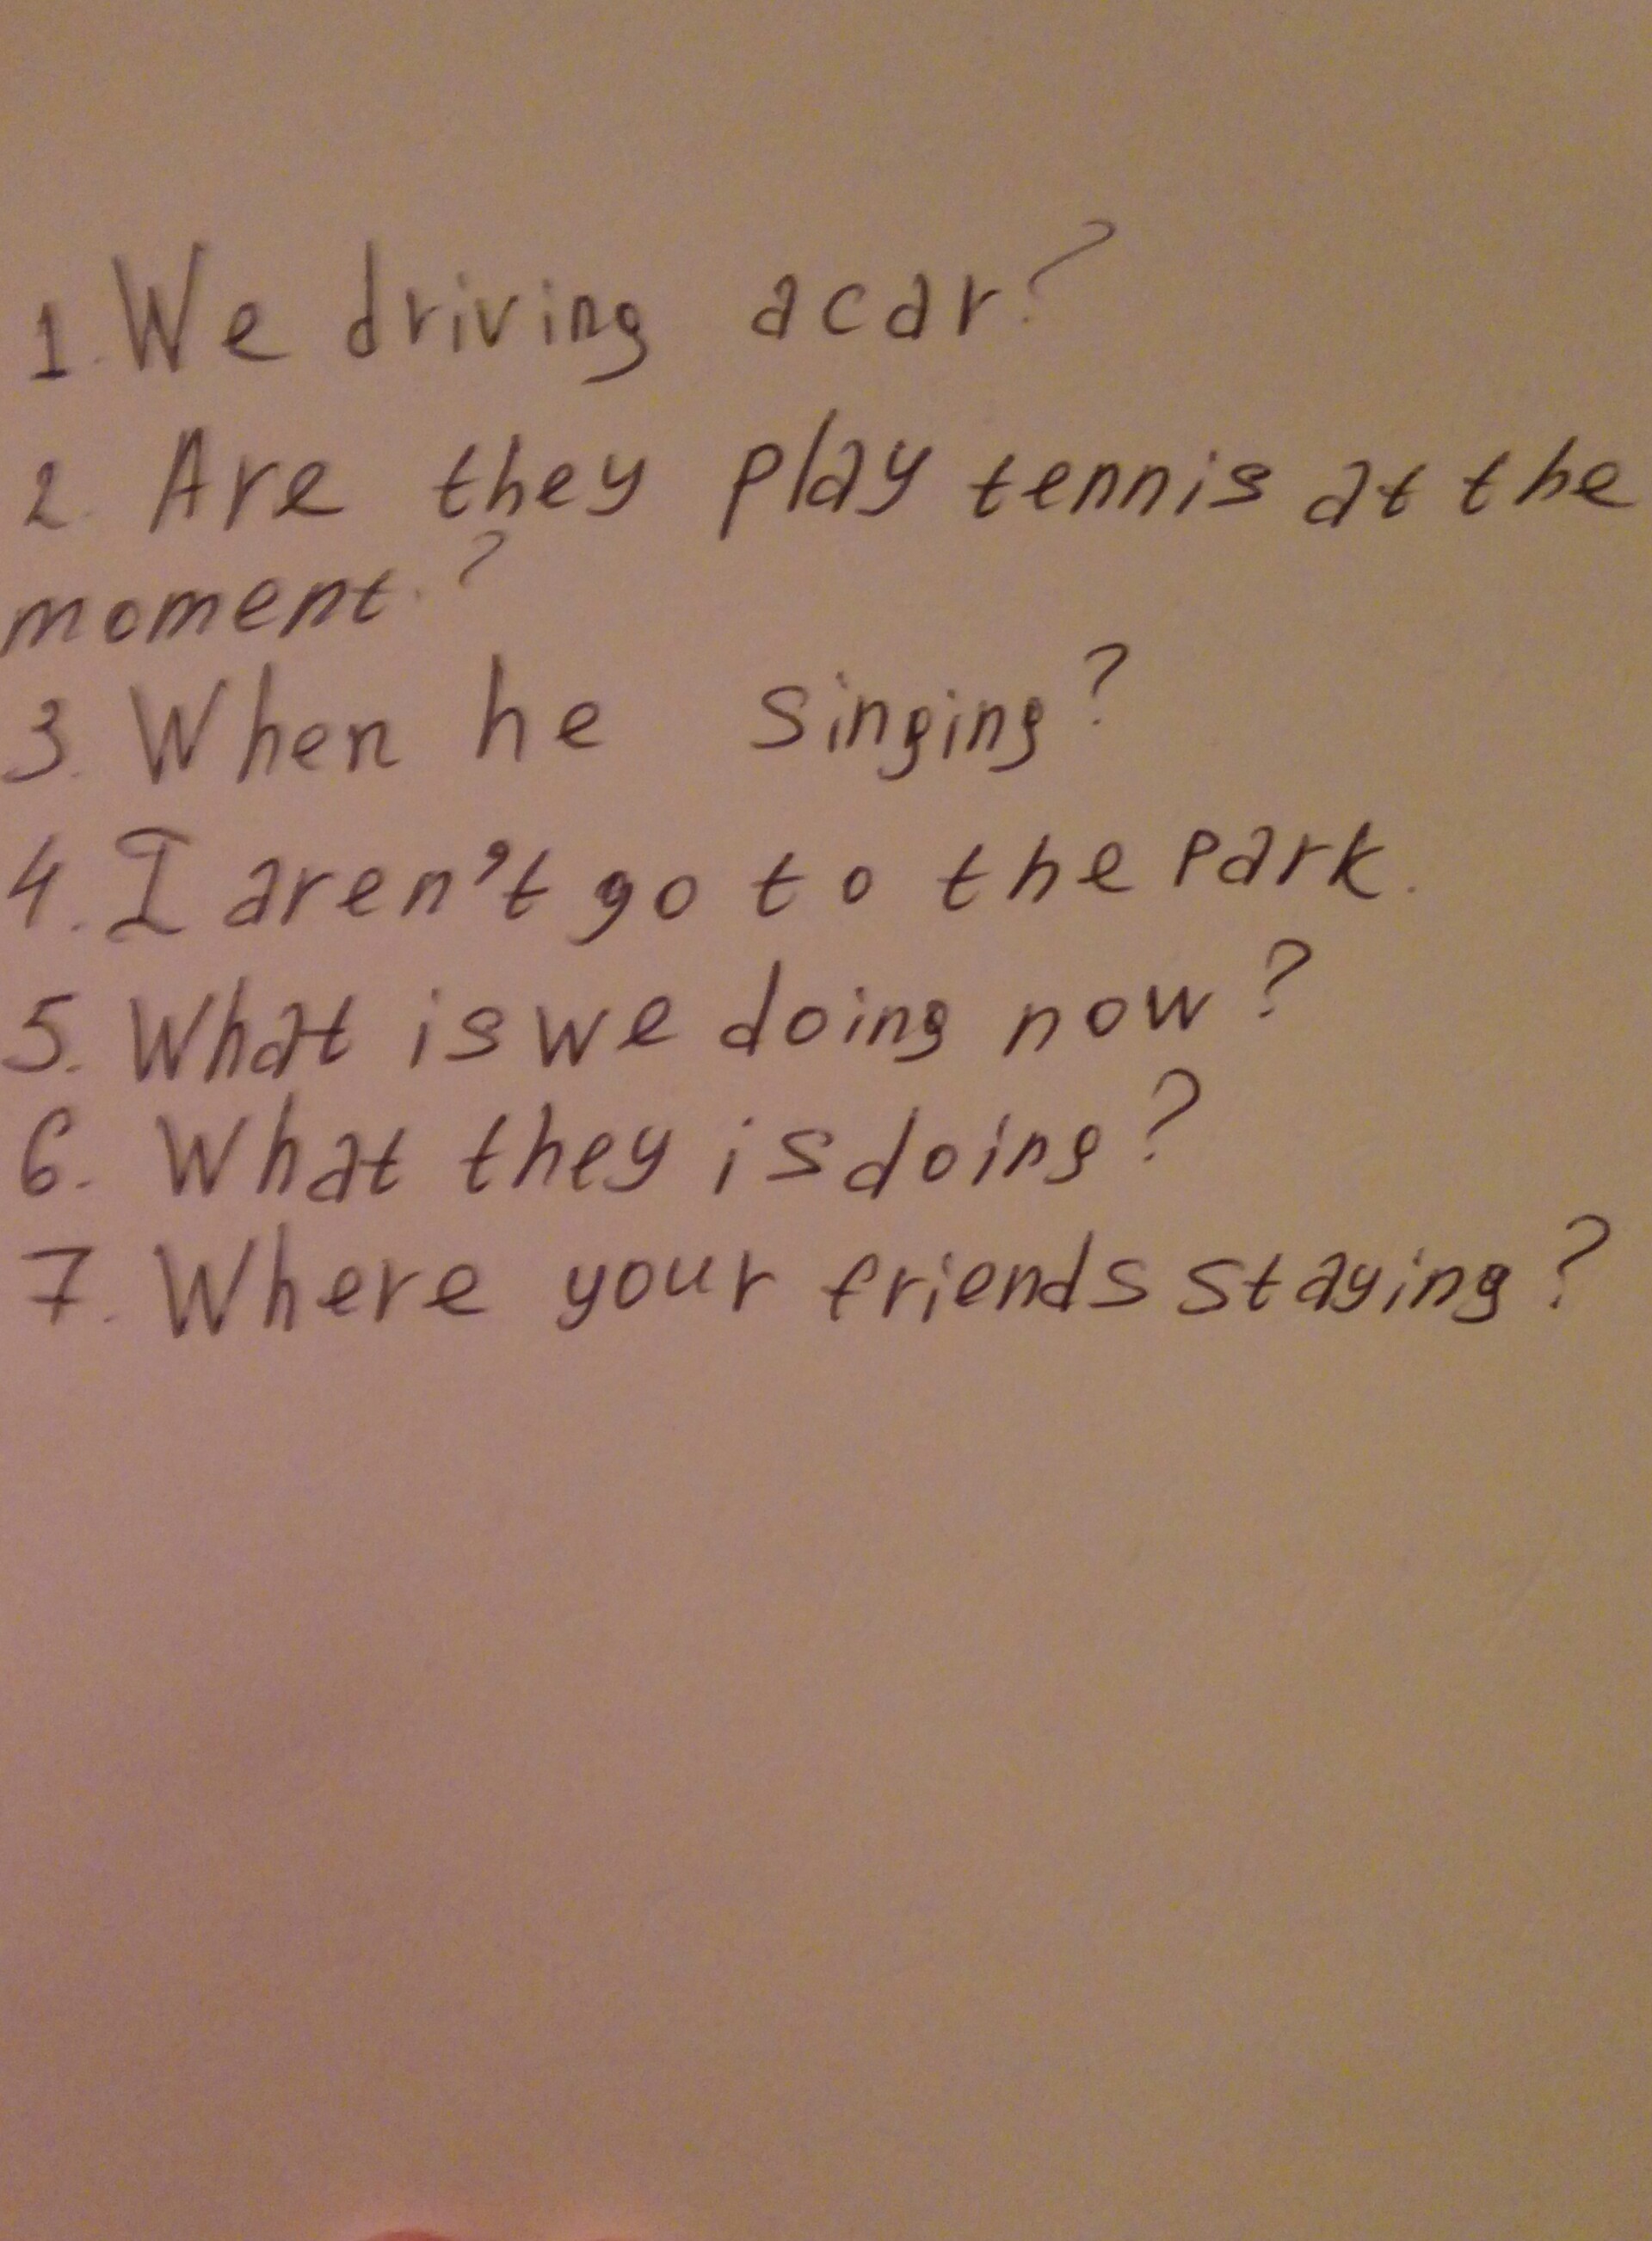 1. We driving a car?
2. Are they play tennis at the
moment.?
3. When he singing?
4. I aren't go to the park.
5. What is we doing now?
6. What they is doing?
7. Where your friends staying?